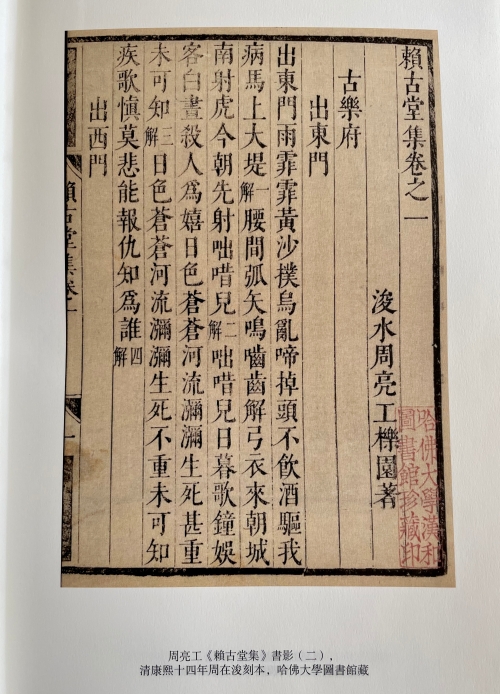 賴古堂集卷之一
浚水周亮工櫟園著
古樂府
出東門
出東門雨霏霏黃沙撲烏亂啼掉頭不飲酒驅我
病馬上大堤一解腰間弧矢鳴嚙齒解弓衣來朝城
南射虎今朝先射咄唶兒二解咄唶兒日暮歌鐘娛
客白晝殺人為嬉日色蒼蒼河流瀰瀰生死甚重
未可知三解日色蒼蒼河流瀰瀰生死不重未可知
疾歌慎莫悲能報仇知為誰四解
出西門
賴古堂集卷一
一
哈佛大學漢和
圖書館珍藏印
周亮工《賴古堂集》書影（二），
清康熙十四年周在浚刻本，哈佛大學圖書館藏